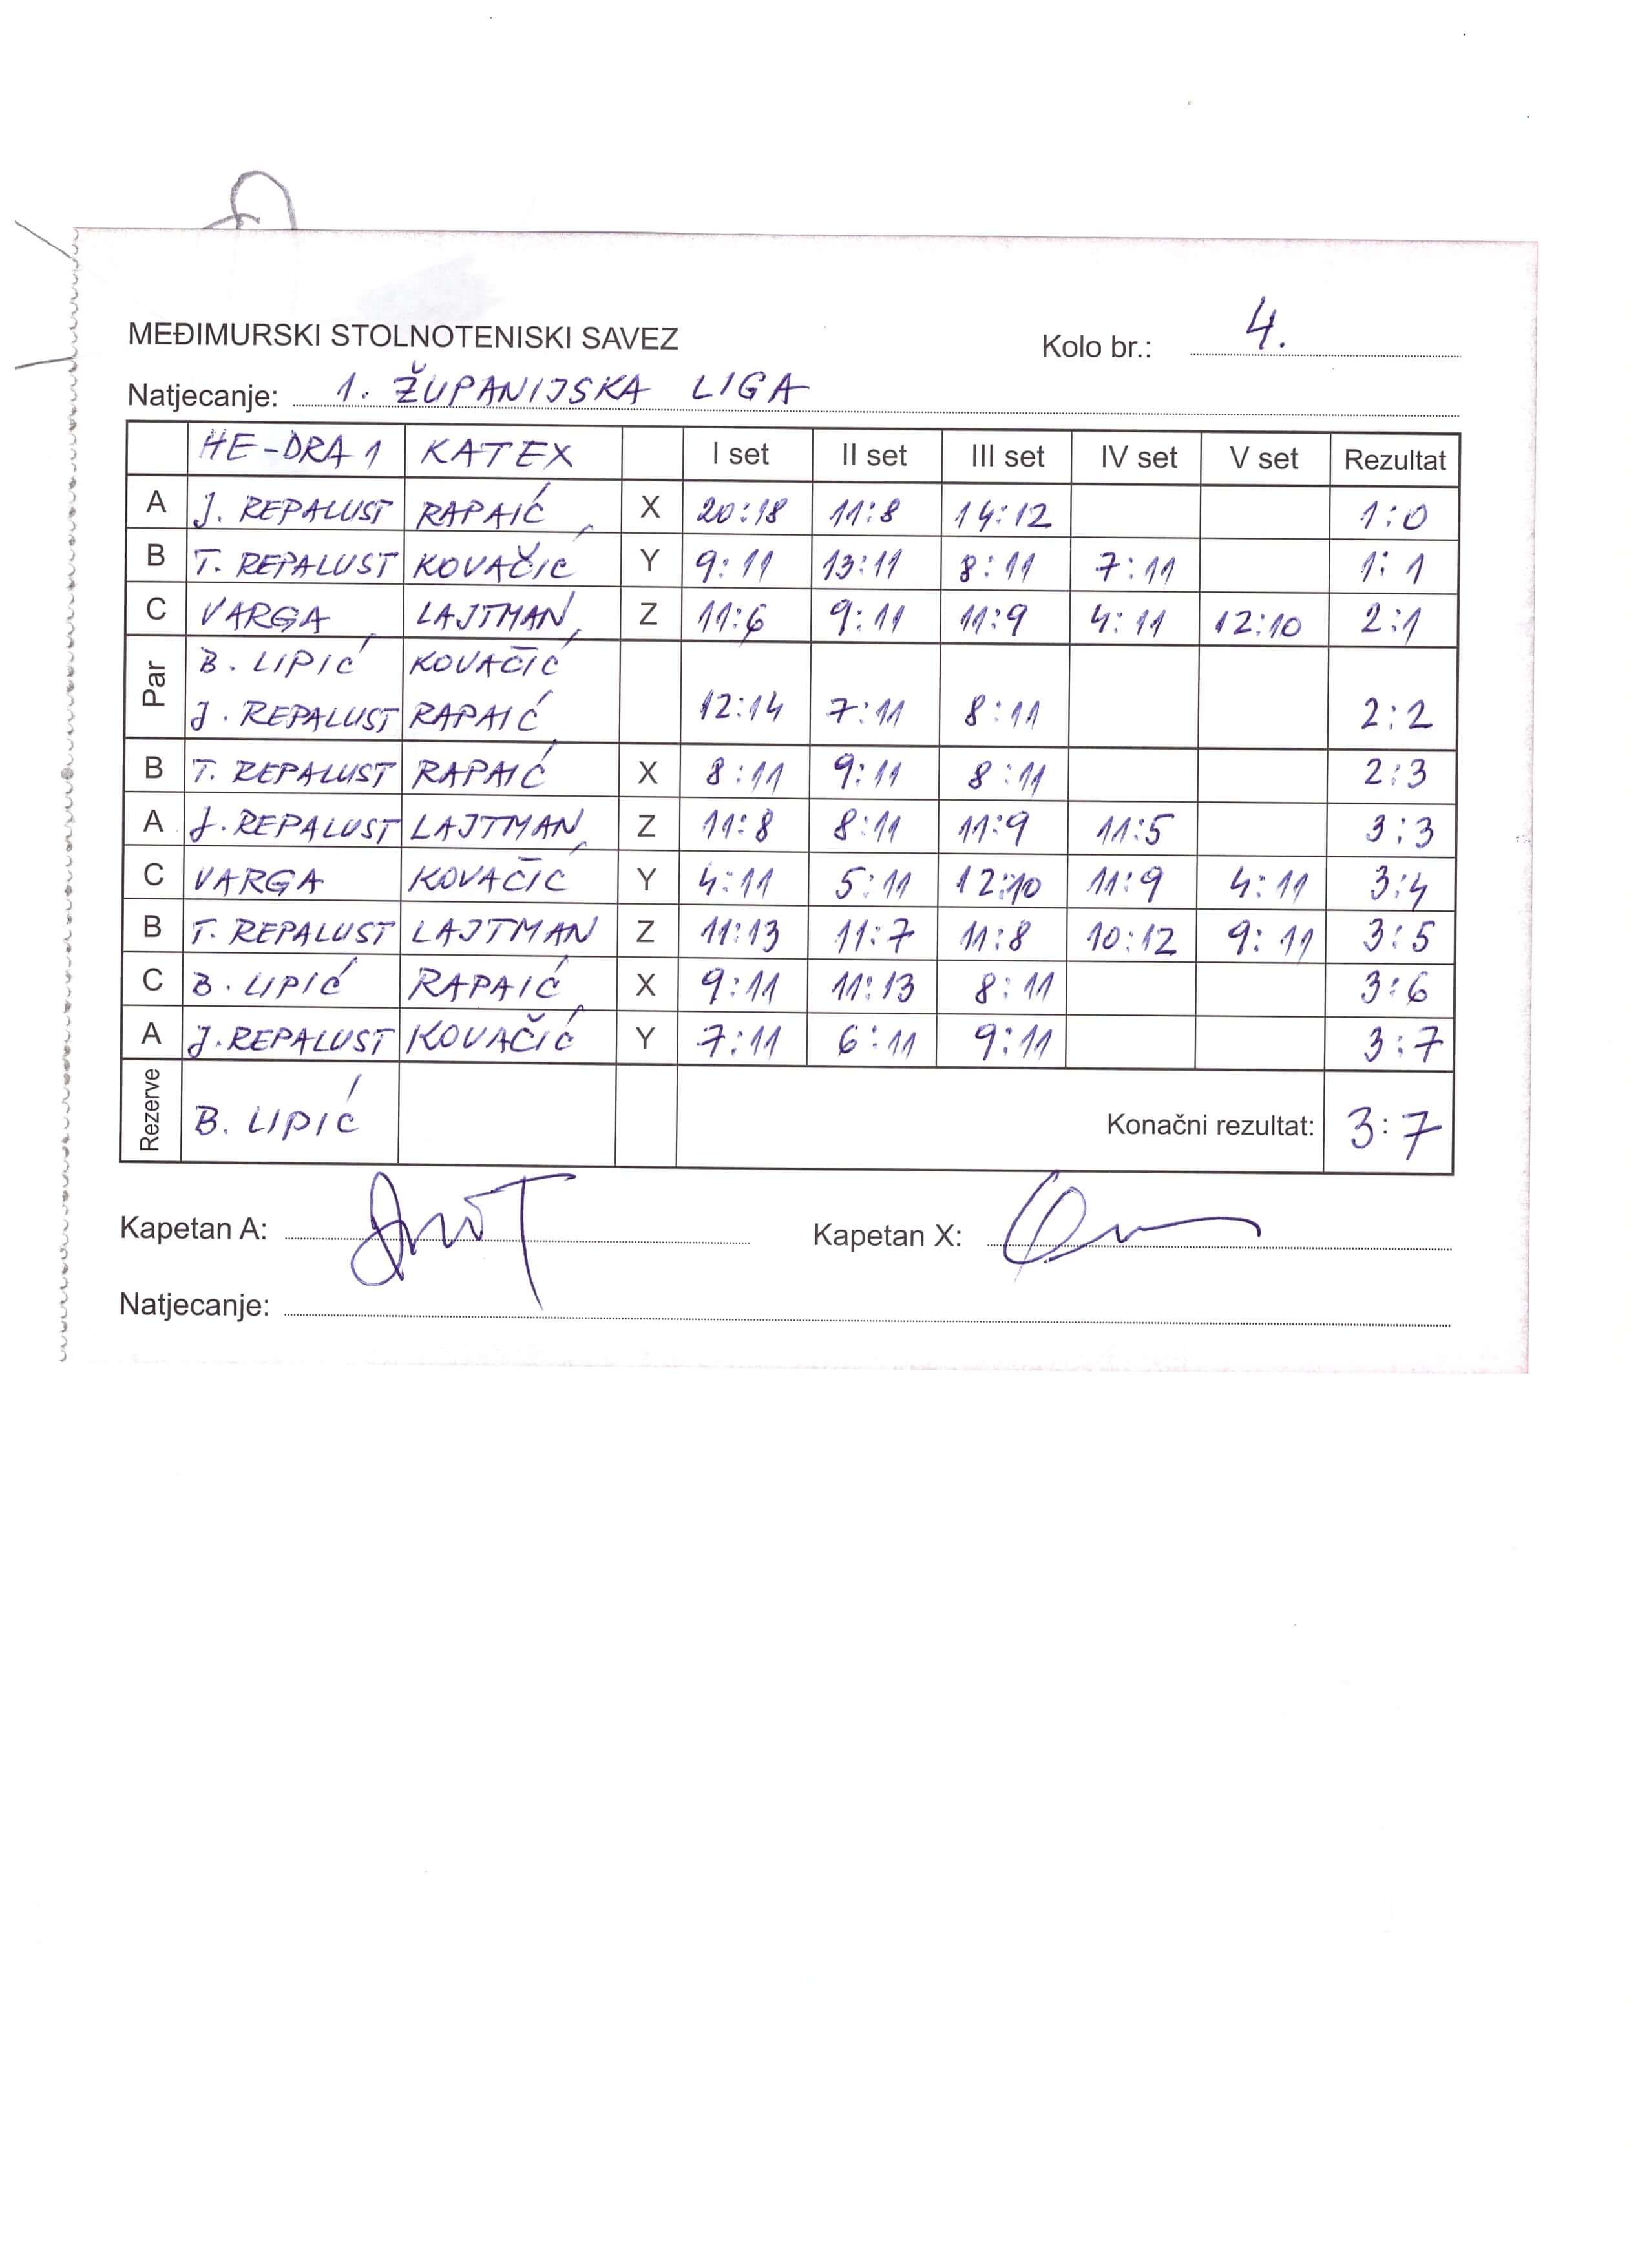 MEĐIMURSKI STOLNOTENISKI SAVEZ Kolo br.: 4.
Natjecanje: 1. ŽUPANIJSKA LIGA
HE-DRA 1 KATEX I set II set III set IV set V set Rezultat
A J. REPALUST RAPAIĆ X 20:18 11:8 14:12 1:0
B T. REPALUST KOVAČIĆ Y 9:11 13:11 8:11 7:11 1:1
C VARGA LAJTMAN Z 11:6 9:11 11:9 4:11 12:10 2:1
Par B. LIPIĆ KOVAČIĆ
J. REPALUST RAPAIĆ 12:14 7:11 8:11 2:2
B T. REPALUST RAPAIĆ X 8:11 9:11 8:11 2:3
A J. REPALUST LAJTMAN Z 11:8 8:11 11:9 11:5 3:3
C VARGA KOVAČIĆ Y 4:11 5:11 12:10 11:9 4:11 3:4
B T. REPALUST LAJTMAN Z 11:13 11:7 11:8 10:12 9:11 3:5
C B. LIPIĆ RAPAIĆ X 9:11 11:13 8:11 3:6
A J. REPALUST KOVAČIĆ Y 7:11 6:11 9:11 3:7
Rezerve B. LIPIĆ Konačni rezultat: 3:7
Kapetan A: Kapetan X:
Natjecanje: